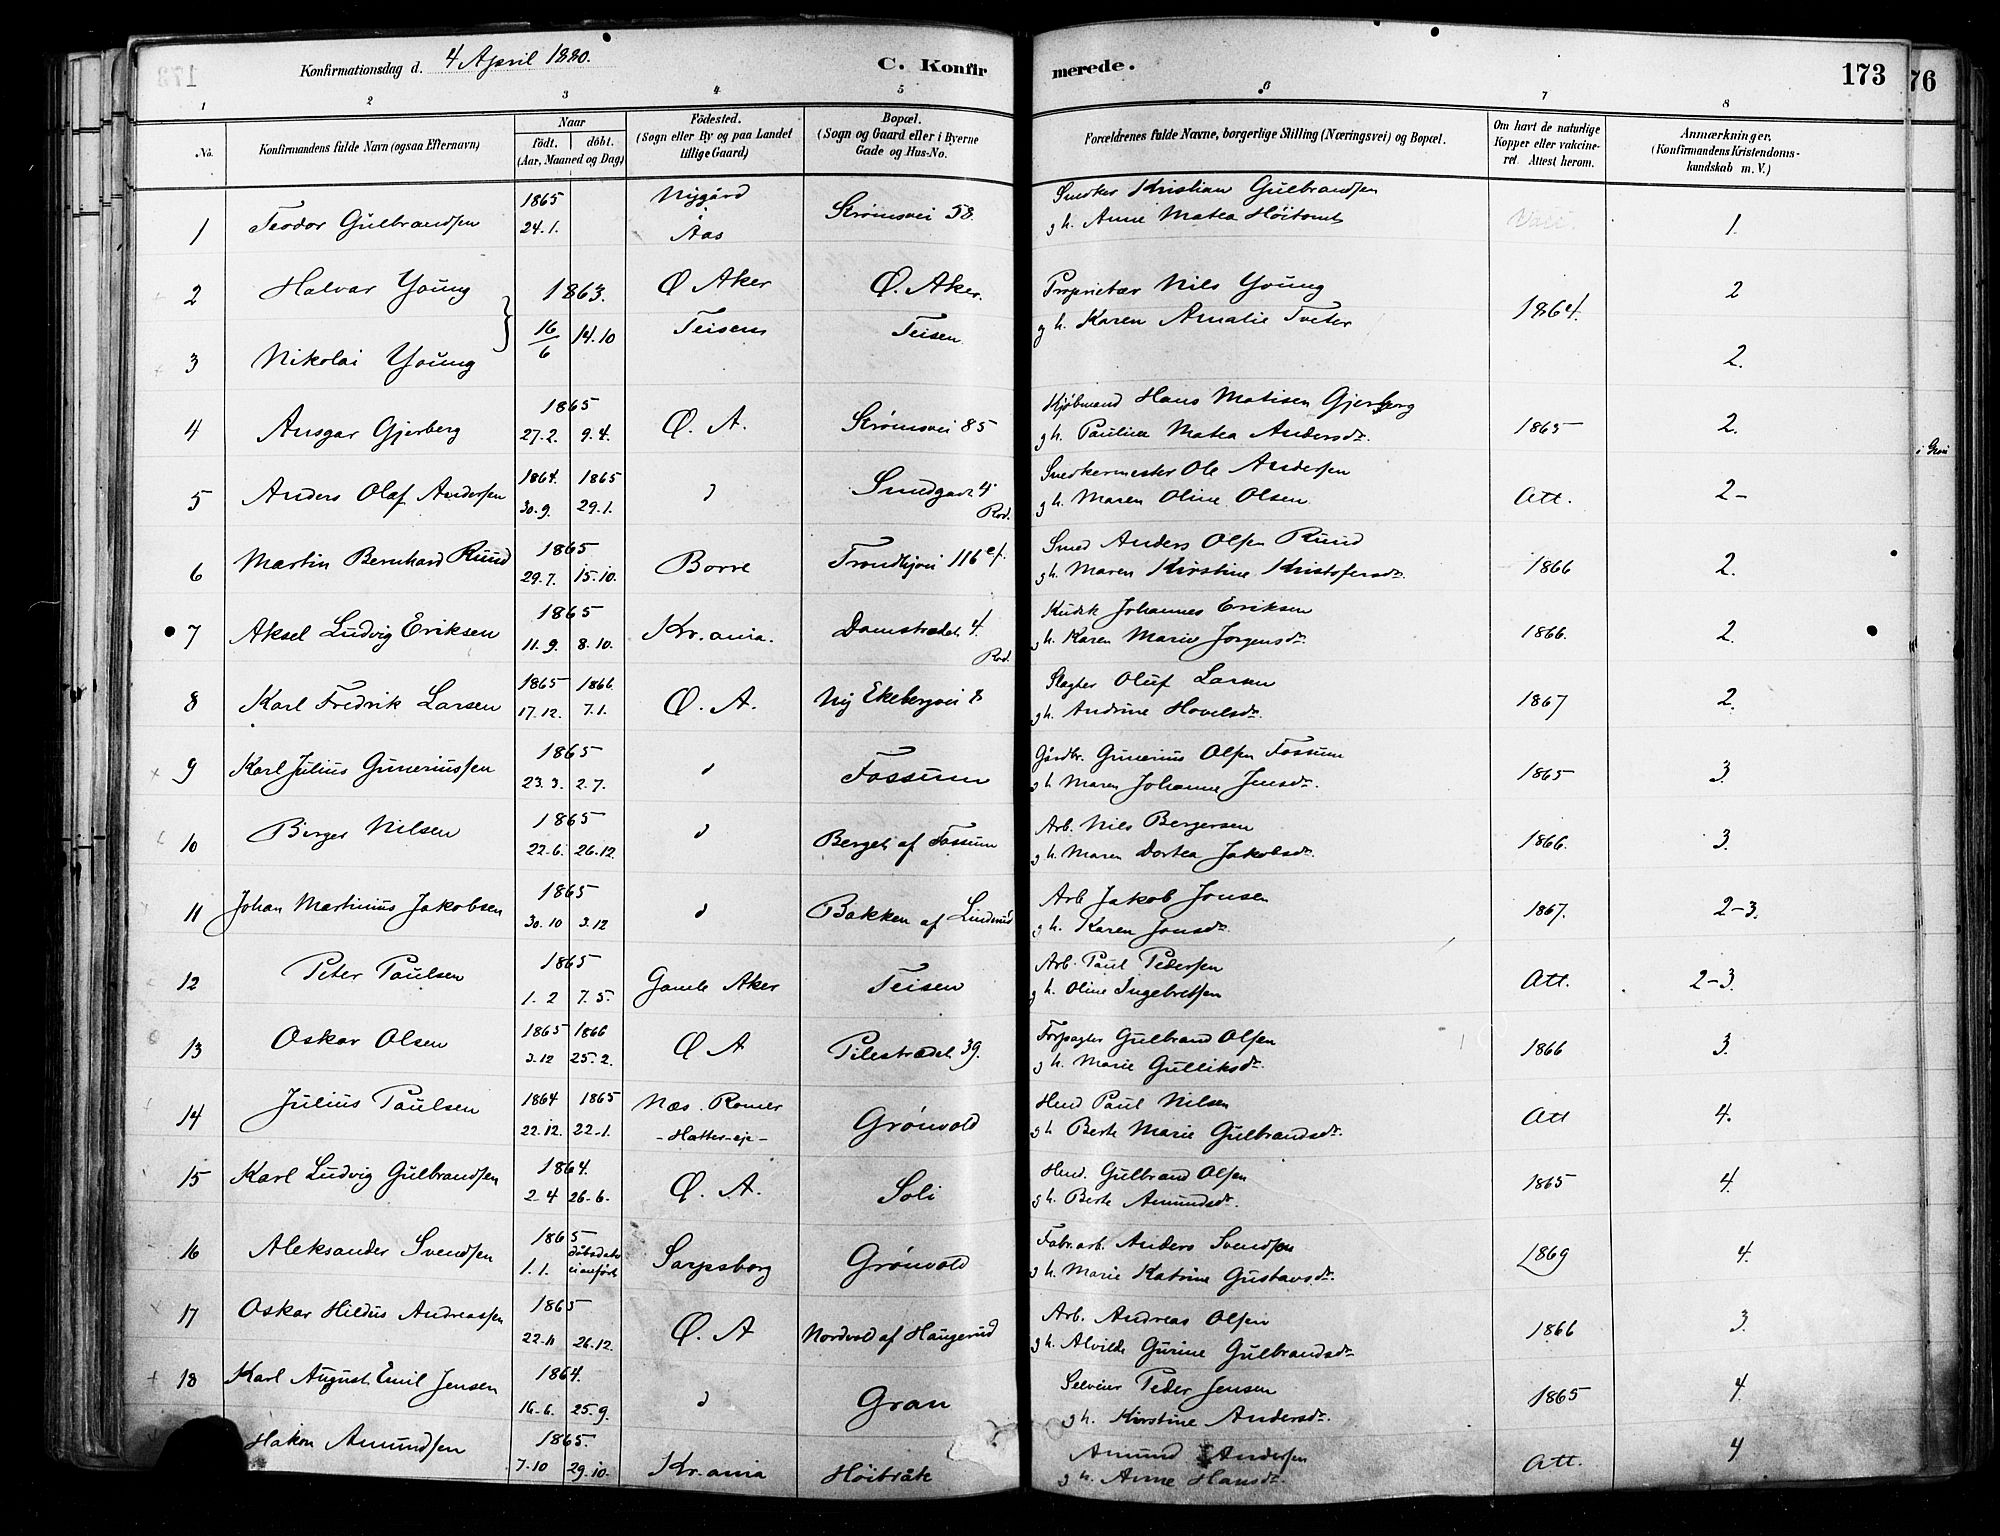 Konfirmationsdag d. 4 April 1880. C. Konfir merede. 173 76
1 2 3 4 5 6 7 8
No. Konfirmandens fulde Navn (ogsaa Efternavn) Naar født. døbt. (Aar, Maaned og Dag) Födested. (Sogn eller By og paa Landet tillige Gaard) Bopæl. (Sogn og Gaard eller i Byerne Gade og Hus-No. Forældrenes fulde Navne, borgerlige Stilling (Næringsvei) og Bopæl. Om havt de naturlige Kopper eller vakcineret. Attest herom. Anmærkninger. (Konfirmandens Kristendomskundskab m. V.)
1865 Nygård Snedker Kristian Gulbrandsen
1 Teodor Gulbrandsen 24.1. i Aas Strømsvei 58. gh. Anne Matea Höitomt 1.
2 Halvar Young 1863. Ø Aker Ø. Aker. Proprietær Nils Young 2
16/6 14.10 Teisen Teisen gh. Karen Amalie Tveter 1864.
3 Nikolai Young 2.
1865 Kjøbmand Hans Matisen Gjerberg
4 Ansgar Gjerberg 27.2. 9.4. Ø. A. Strømsvei 85 gh. Pauline Matea Andersdr. 1865 2.
1864. 1865 Snedkermester Ole Andersen
5 Anders Olaf Andersen 30.9. 29.1. d Smedgade 4 Rod. gh. Maren Oline Olsen Att. 2-
1865 Smed Anders Olsen Ruud
6 Martin Bernhard Ruud 29.7. 15.10. Borre Trondhjvei 116 gh. Maren Kirstine Kristofersdr. 1866 2.
1865 Kudsk Johannes Eriksen
7 Aksel Ludvig Eriksen 11.9. 8.10. Kr.ania. Damstrædet 4. Rod. gh. Karen Marie Jorgensdr 1866. 2.
1865 1866. Slagter Oluf Larsen
8 Karl Fredrik Larsen 17.12. 7.1. Ø. A. Ny Ekebergvei 8 gh. Andrine Hovelsdr. 1867 2.
1865 Gårdbr. Gunerius Olsen Fossum
9 Karl Julius Guneriussen 23.3. 2.7. d Fossum gh Maren Johanne Jensdr. 1865 3.
1865 Arb. Nils Bergersen
10 Birger Nilsen 22.6. 26.12. d Berget af Fossum gh. Maren Dortea Jakobsdr. 1866. 3.
1865 Arb Jakob Jonsen
11 Johan Martinius Jakobsen 30.10 3.12 d Bakken af Linderud gh. Karen Jonsdr. 1867. 2-3.
1865 Arb. Paul Pedersen
12 Peter Paulsen 1.2 7.5. Gamle Aker Teisen gh. Oline Ingebretsen Att. 2-3.
1865 1866 Forpagter Gulbrand Olsen
13 Oskar Olsen 3.12 25.2. Ø A Pilestrædet 39. gh. Marie Gulliksdr. 1866 3.
1864 1865 Næs. Romer Hmd Paul Nilsen
14 Julius Paulsen 22.12. 22-1. -Hatter-eje- Grönvold gh Berte Marie Gulbrandsdr. Att 4.
1864. Hmd. Gulbrand Olsen
15 Karl Ludvig Gulbrandsen 2-4 26-6. Ø. A. Soli gh. Berte Amundsdr. 1865 4.
1865 Fabr.arb. Anders Svendsen
16 Aleksander Svendsen 1.1. dåbsdato ei anført Sarpsborg Grönvold gh. Marie Katrine Gustavsdr. 1869 4.
1865 Arb. Andreas Olsen
17 Oskar Hildus Andreassen 22.11 26.12. Ø. A Nordvold af Haugerud gh. Alvilde Gurine Gulbrandsdr 1866 3.
1864. Selveier Peder Jensen
18 Karl August Emil Jensen 16-6. 25.9. d Gran gh. Kirstine Andersdr. 1865 4.
Hakon Amundsen 1865. Amund Andersen 4
7.10 29.10. Kr.ania Höibråte gh. Anne Hansdr. Att.